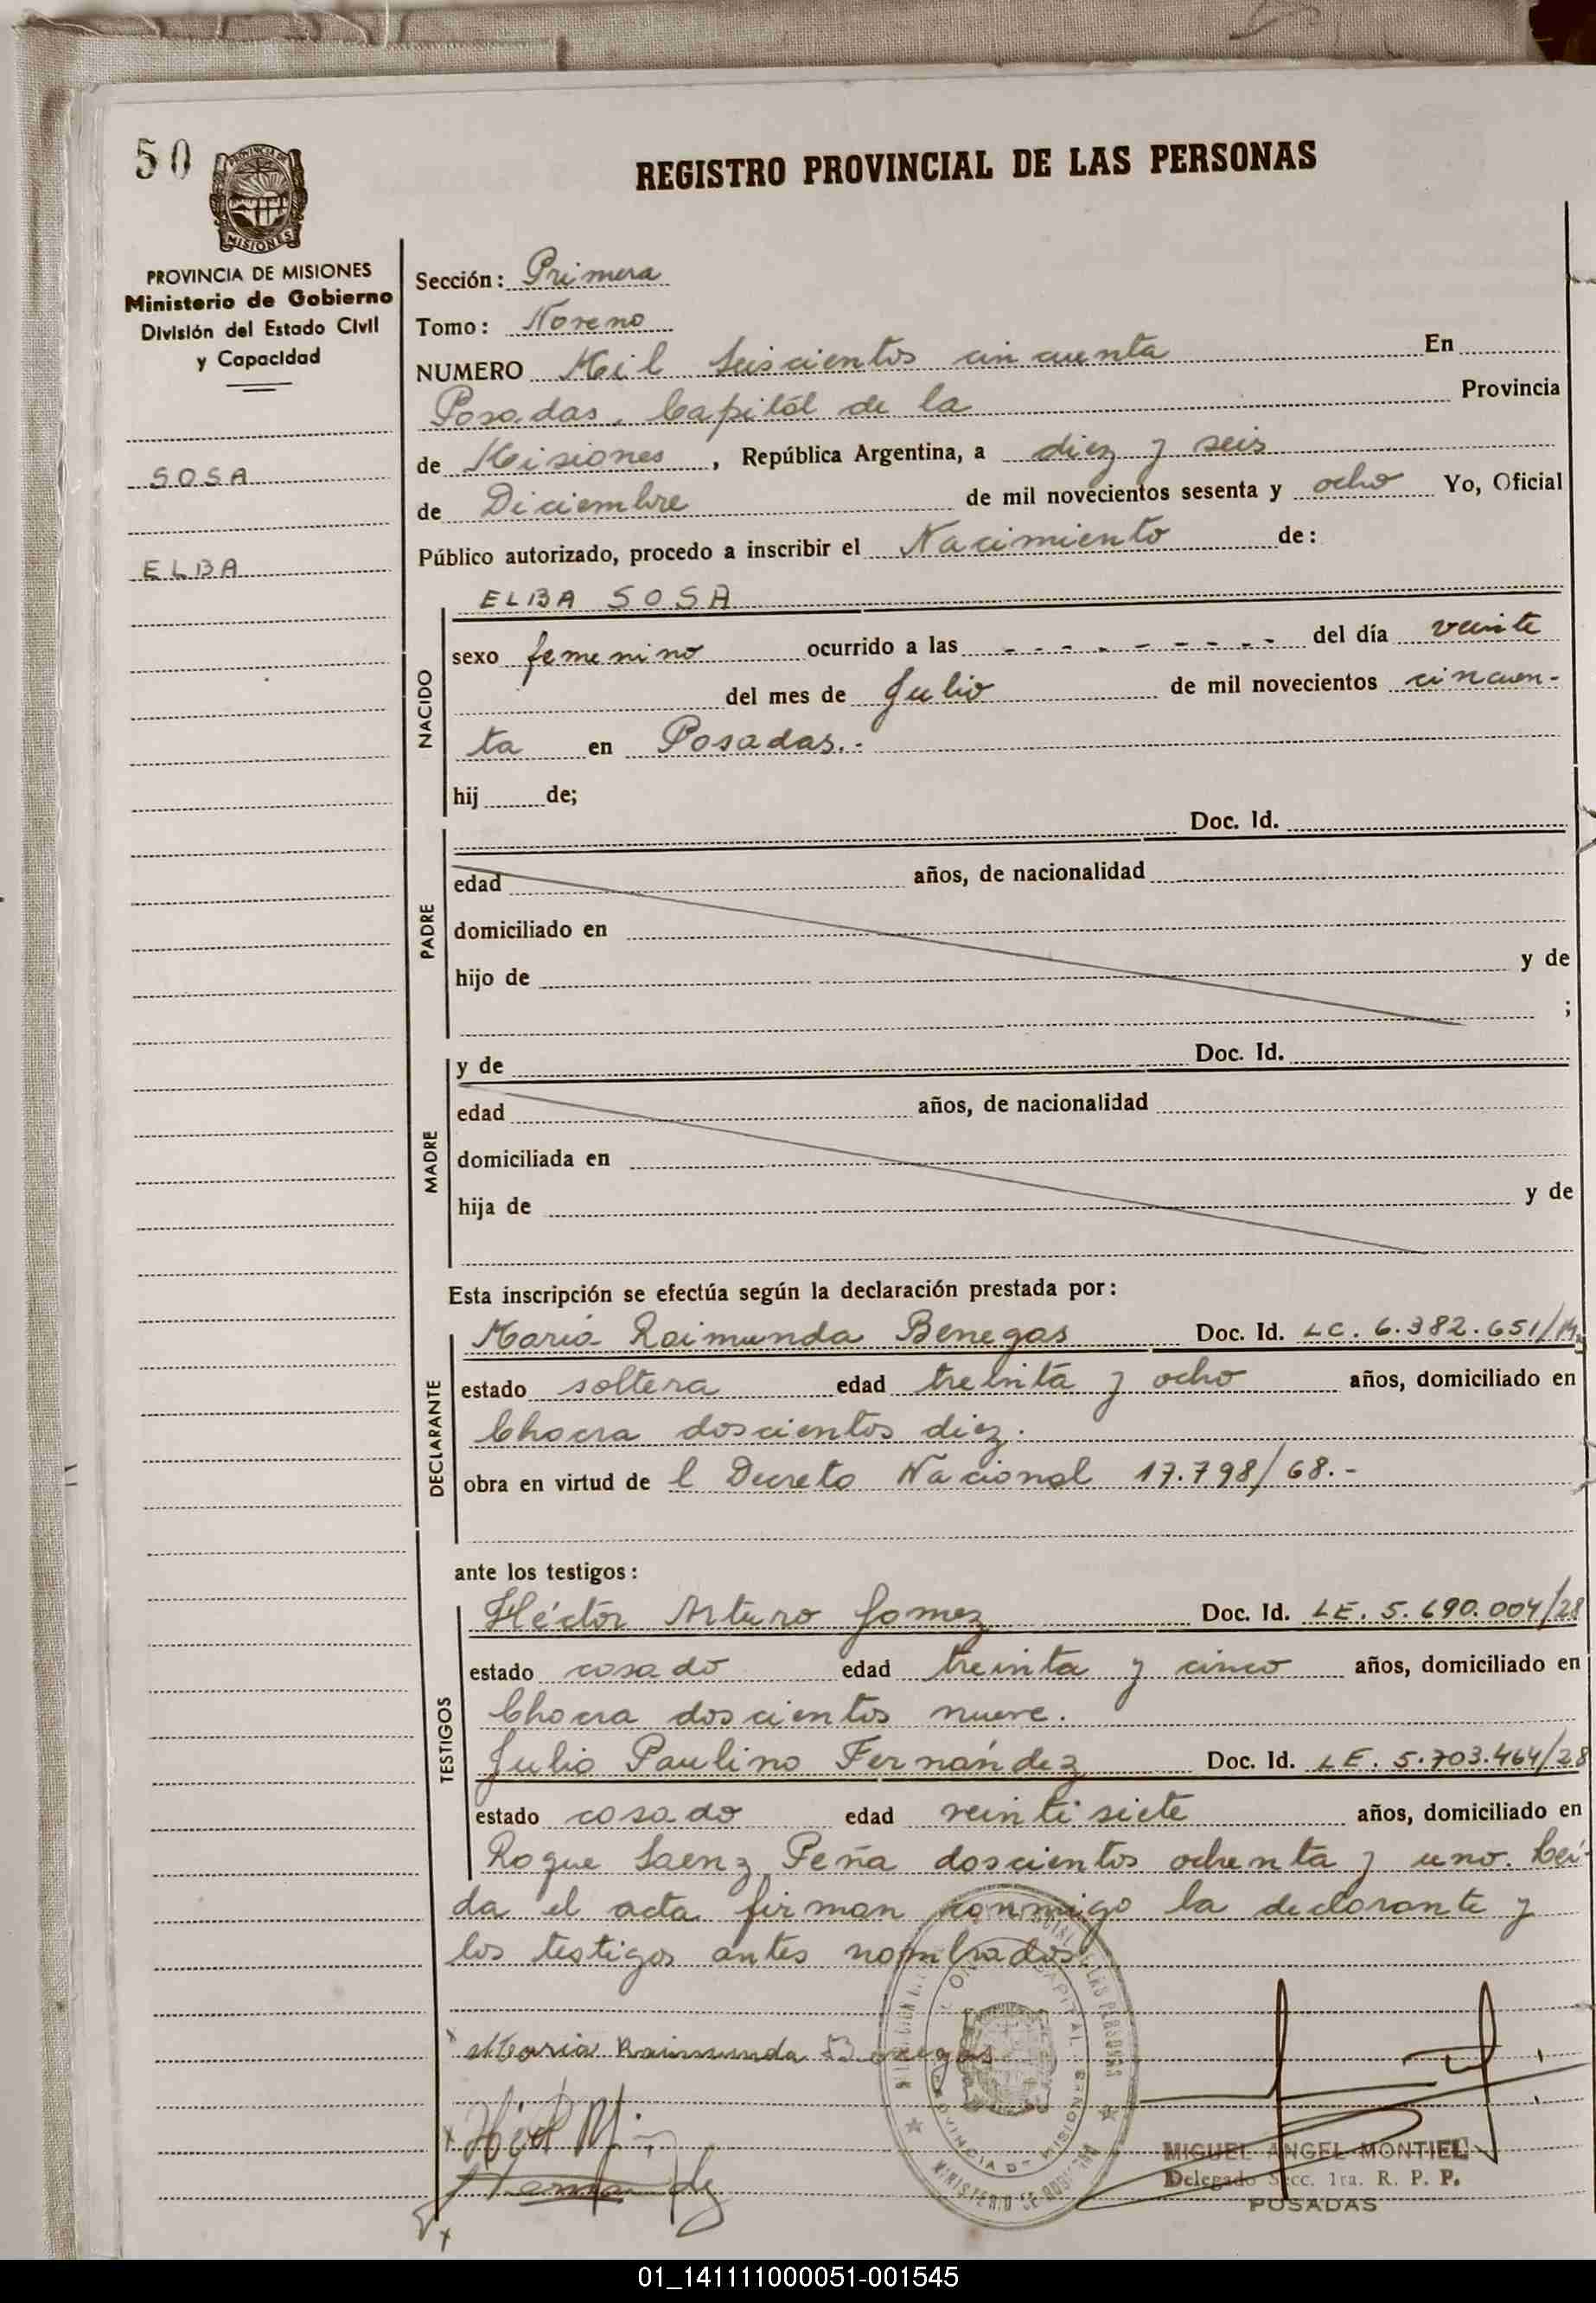 50
REGISTRO PROVINCIAL DE LAS PERSONAS
PROVINCIA DE
MISIONES
PROVINCIA DE MISIONES
Ministerio de Gobierno
División del Estado Civil
y Capacidad
SOSA
ELBA
Sección: Primera
Tomo: Noveno
NUMERO Mil Seiscientos cincuenta En
Posadas, Capitál de la Provincia
de Misiones, República Argentina, a diez y seis
de Diciembre de mil novecientos sesenta y ocho Yo, Oficial
Público autorizado, procedo a inscribir el Nacimiento de:
ELBA SOSA
NACIDO
sexo femenino ocurrido a las - - - - - - - - - del día veinte
del mes de Julio de mil novecientos cincuen-
ta en Posadas.-
hij de;
PADRE
Doc. Id.
edad años, de nacionalidad
domiciliado en
hijo de y de
;
MADRE
y de Doc. Id.
edad años, de nacionalidad
domiciliada en
hija de y de
Esta inscripción se efectúa según la declaración prestada por:
DECLARANTE
María Raimunda Benegas Doc. Id. LC. 6.382.651/
estado soltera edad treinta y ocho años, domiciliado en
Chacra doscientos diez.
obra en virtud de l Decreto Nacional 17.798/68.-
ante los testigos:
TESTIGOS
Héctor Arturo Gomez Doc. Id. LE. 5.690.004/28
estado casado edad treinta y cinco años, domiciliado en
Chacra doscientos nueve.
Julio Paulino Fernández Doc. Id. LE. 5.703.464/28
estado casado edad veintisiete años, domiciliado en
Roque Saenz Peña doscientos ochenta y uno. Leí-
da el acta firman conmigo la declarante y
los testigos antes nombrados.
Maria Raimunda Benegas
MINISTERIO DE GOBIERNO
PROVINCIA DE MISIONES
CAPITAL
DE LAS PERSONAS
MIGUEL ANGEL MONTIEL
Delegado Secc. 1ra. R. P. P.
POSADAS
01_141111000051-001545